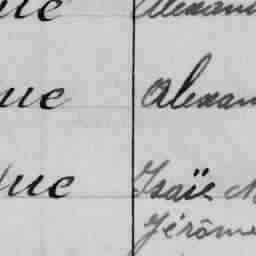 ue Alexan
ue Alexan
ue Isaïe
Jérôme